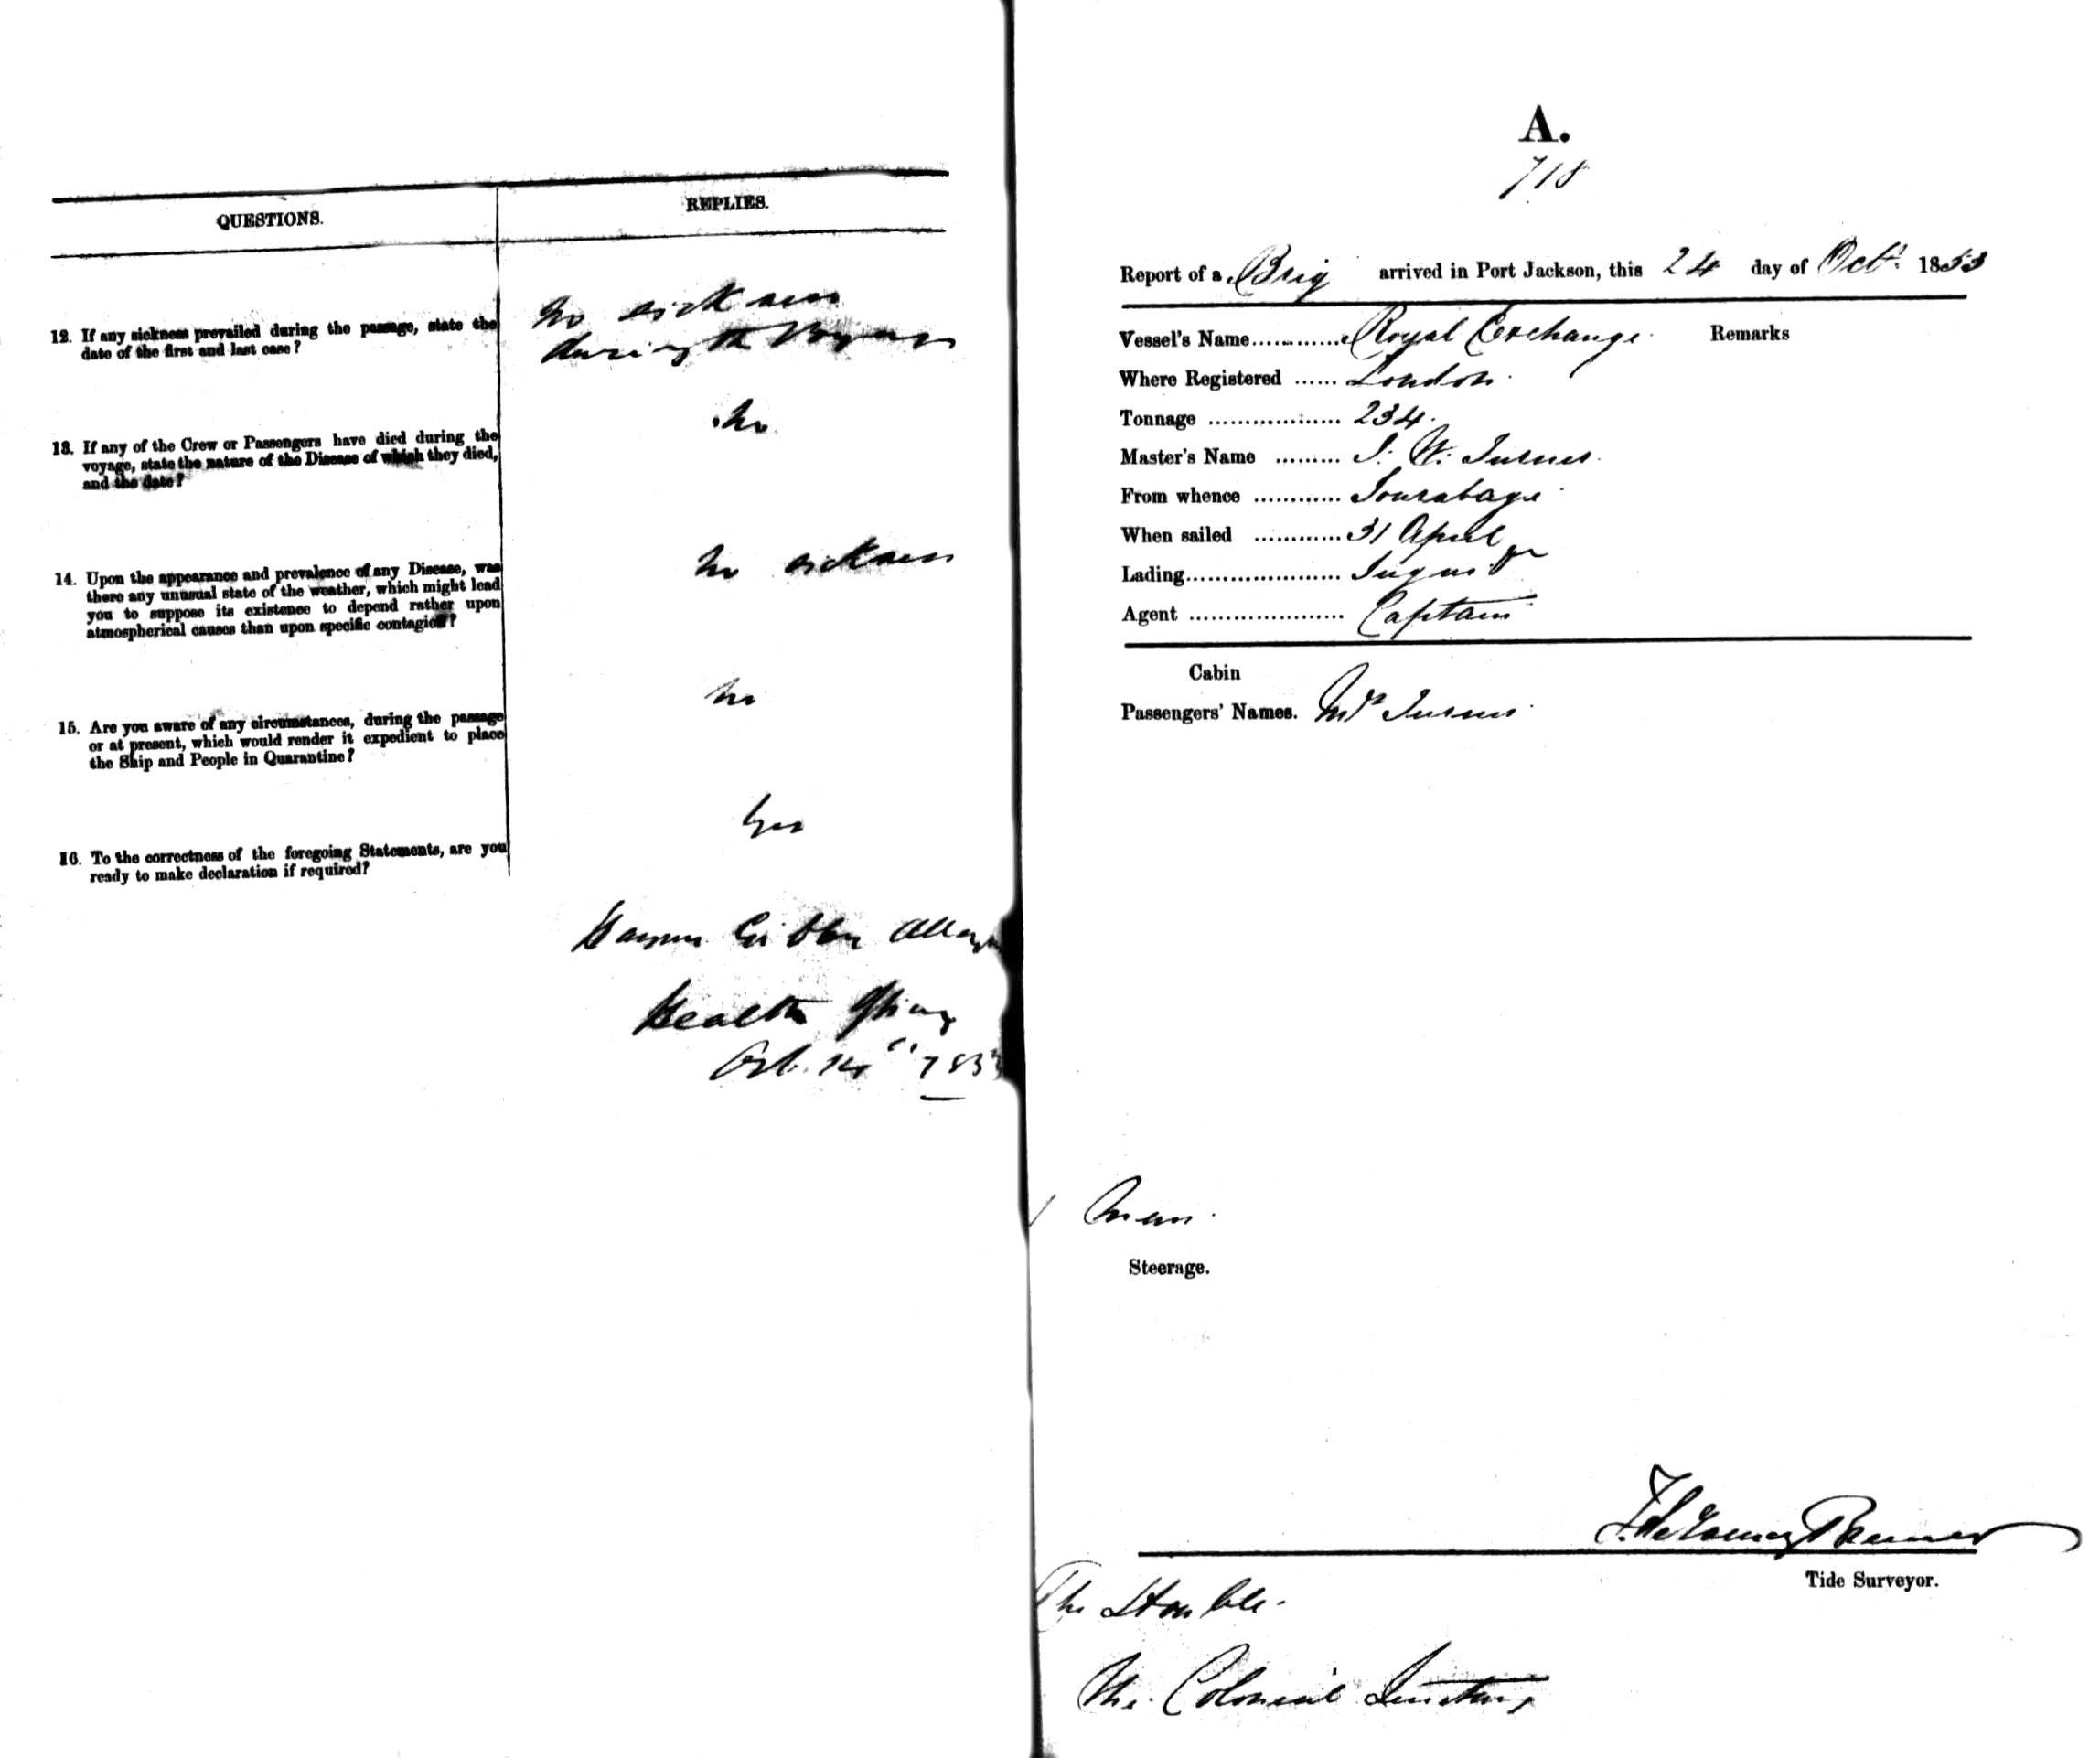 QUESTIONS.
REPLIES.
12. If any sickness prevailed during the passage, state the
date of the first and last case?
No sickness
during the Voyage
13. If any of the Crew or Passengers have died during the
voyage, state the nature of the Disease of which they died,
and the date?
No
14. Upon the appearance and prevalence of any Disease, was
there any unusual state of the weather, which might lead
you to suppose its existence to depend rather upon
atmospherical causes than upon specific contagion?
No sickness
15. Are you aware of any circumstances, during the passage
or at present, which would render it expedient to place
the Ship and People in Quarantine?
No
16. To the correctness of the foregoing Statements, are you
ready to make declaration if required?
Yes
Haynes Gibbes Alleyne
Health Officer
Oct. 1853
A.
718
Report of a Brig arrived in Port Jackson, this 24 day of Oct. 1853
Vessel's Name............ Royal Exchange. Remarks
Where Registered ...... London.
Tonnage .................... 234.
Master's Name ......... W. Turner.
From whence ............ Sourabaya
When sailed ............ 31 April
Lading...................... Sugar &c
Agent ...................... Captain
Cabin
Passengers' Names. Mrs Turner.
Steerage.
Tide Surveyor.
The Honble.
The Colonial Secretary